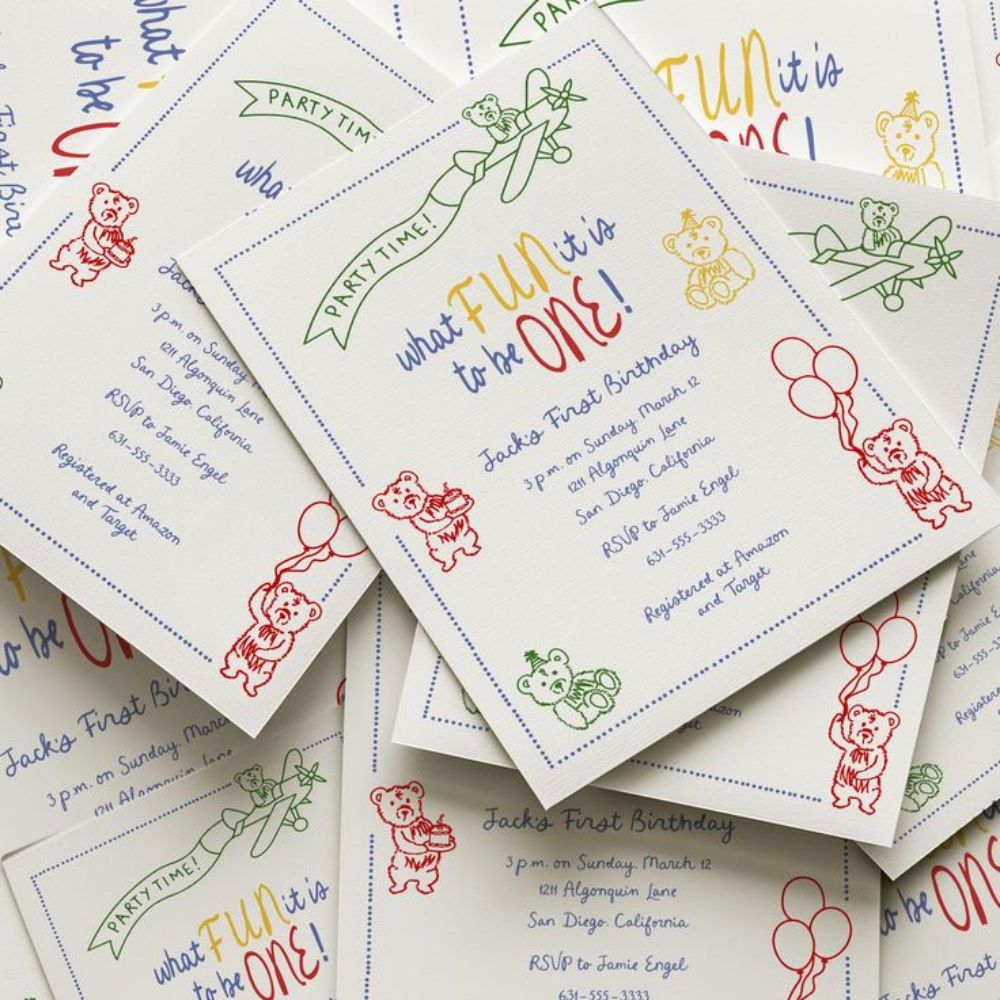 what
to be
PARTY TIM
wha
3 p.m. on Sunday,
1211 Algonquin Lane
San Diego, California
RSVP to Jamie Engel
631-555-3333
Registered at Amazon
and Target
FUN it is
ONE!
PARTY TIME!
what FUN it is
to be ONE!
Jack's First Birthday
3 p.m. on Sunday, March 12
1211 Algonquin Lane
San Diego, California
RSVP to Jamie Engel
631-555-3333
Registered at Amazon
and Target
to be
Jack's First Bir
3 p.m. on Sunday, March
1211 Algonquin Lane
PARTY TIME!
what FUN it is
to be ONE!
Jack's First Birthday
3 p.m. on Sunday, March 12
1211 Algonquin Lane
San Diego, California
RSVP to Jamie Engel
631-555-3333
Lane
California
RSVP to Jamie E
631-555-33
Registere
to be ONE
Jack's First